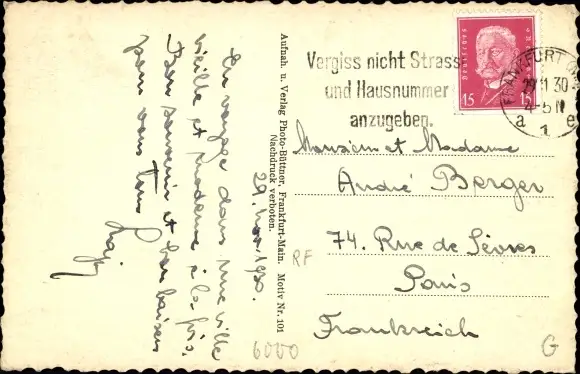 En voyage dans une ville
vieille et moderne à la fois.
Bon souvenir et bon baisers
pour vous tous
29. Nov. 1930.
Aufnah. u. Verlag Photo-Büttner, Frankfurt-Main. Motiv Nr. 101
Nachdruck verboten.
Vergiss nicht Strasse
und Hausnummer
anzugeben.
15 15
FRANKFURT
11 30
4-5 N
a e
1
Monsieur et Madame
André Berger
74. Rue de Sèvres
Paris
Frankreich
RF
6000
G